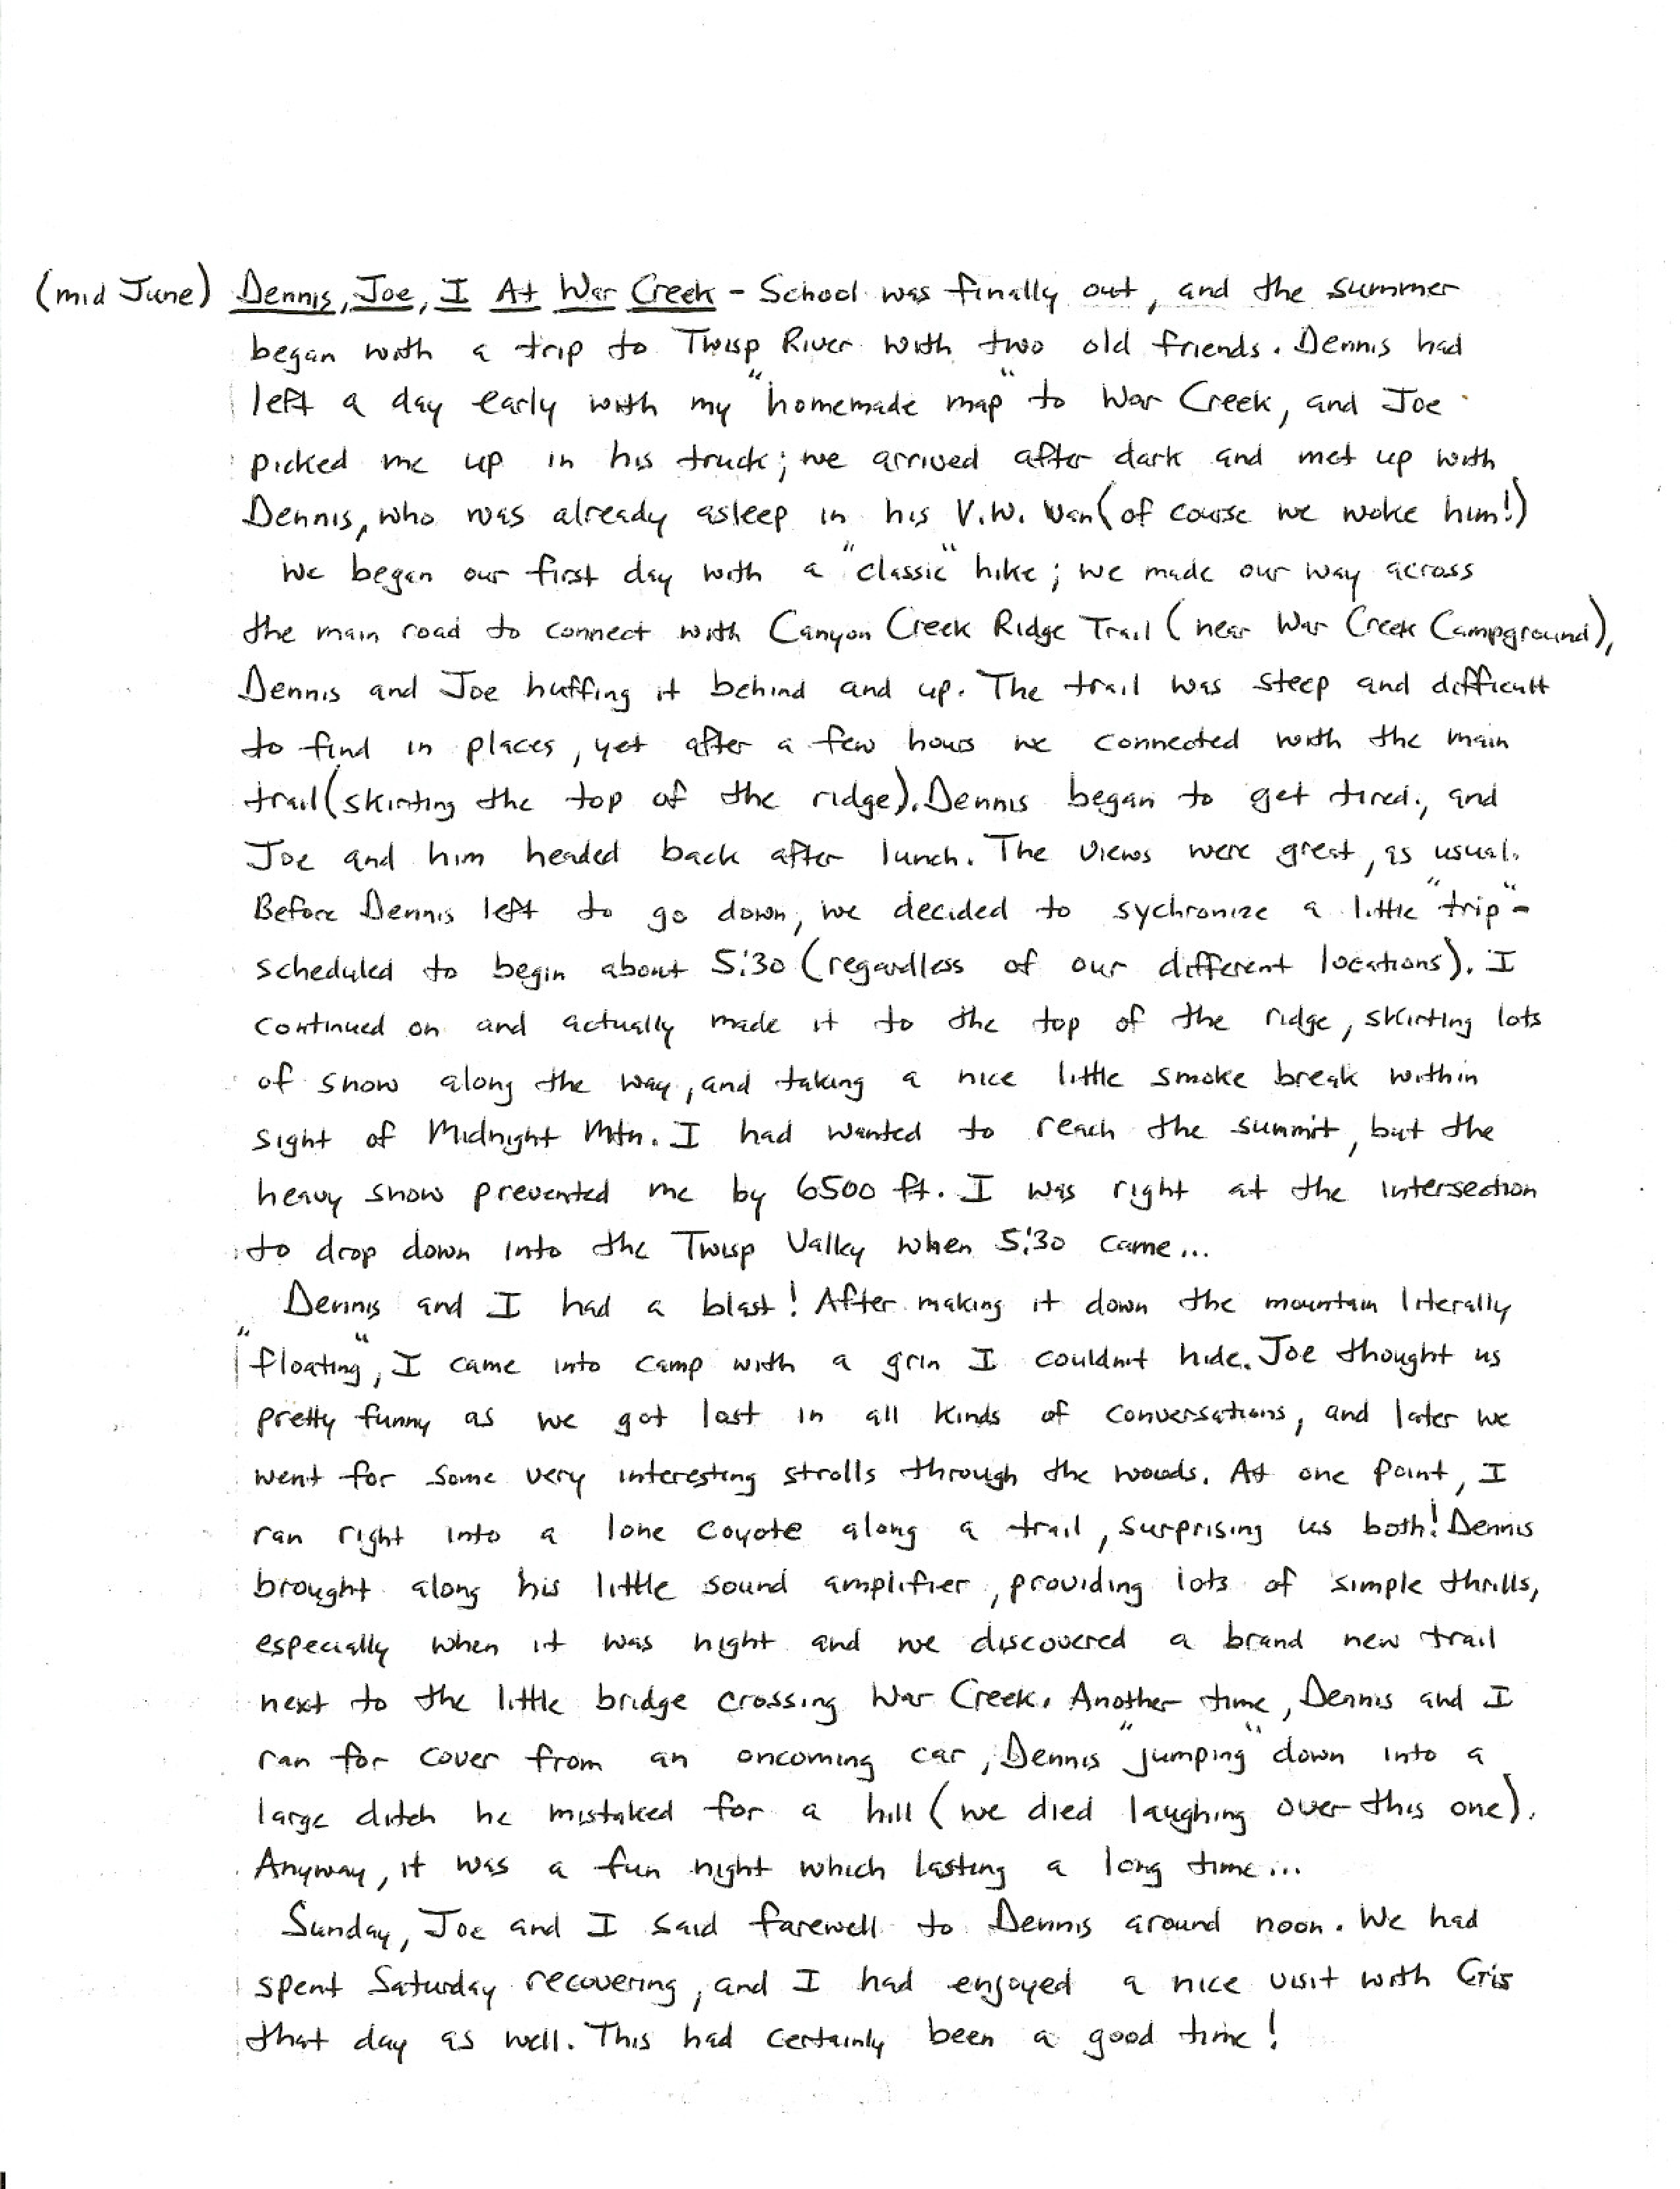 (mid June) Dennis, Joe, I At War Creek - School was finally out, and the summer
began with a trip to Twisp River with two old friends. Dennis had
left a day early with my "homemade map" to War Creek, and Joe
picked me up in his truck; we arrived after dark and met up with
Dennis, who was already asleep in his V.W. Van (of course we woke him!)
We began our first day with a "classic" hike; we made our way across
the main road to connect with Canyon Creek Ridge Trail (near War Creek Campground),
Dennis and Joe huffing it behind and up. The trail was steep and difficult
to find in places, yet after a few hours we connected with the main
trail (skirting the top of the ridge). Dennis began to get tired, and
Joe and him headed back after lunch. The views were great, as usual.
Before Dennis left to go down, we decided to sychronize a little "trip"-
scheduled to begin about 5:30 (regardless of our different locations). I
continued on and actually made it to the top of the ridge, skirting lots
of snow along the way, and taking a nice little smoke break within
sight of Midnight Mtn. I had wanted to reach the summit, but the
heavy snow prevented me by 6500 ft. I was right at the intersection
to drop down into the Twisp Valley when 5:30 came...
Dennis and I had a blast! After making it down the mountain literally
"floating", I came into camp with a grin I couldn't hide. Joe thought us
pretty funny as we got lost in all kinds of conversations, and later we
went for some very interesting strolls through the woods. At one point, I
ran right into a lone coyote along a trail, surprising us both! Dennis
brought along his little sound amplifier, providing lots of simple thrills,
especially when it was night and we discovered a brand new trail
next to the little bridge crossing War Creek. Another time, Dennis and I
ran for cover from an oncoming car, Dennis "jumping" down into a
large ditch he mistaked for a hill (we died laughing over this one).
Anyway, it was a fun night which lasting a long time...
Sunday, Joe and I said farewell to Dennis around noon. We had
spent Saturday recovering, and I had enjoyed a nice visit with Cris
that day as well. This had certainly been a good time!